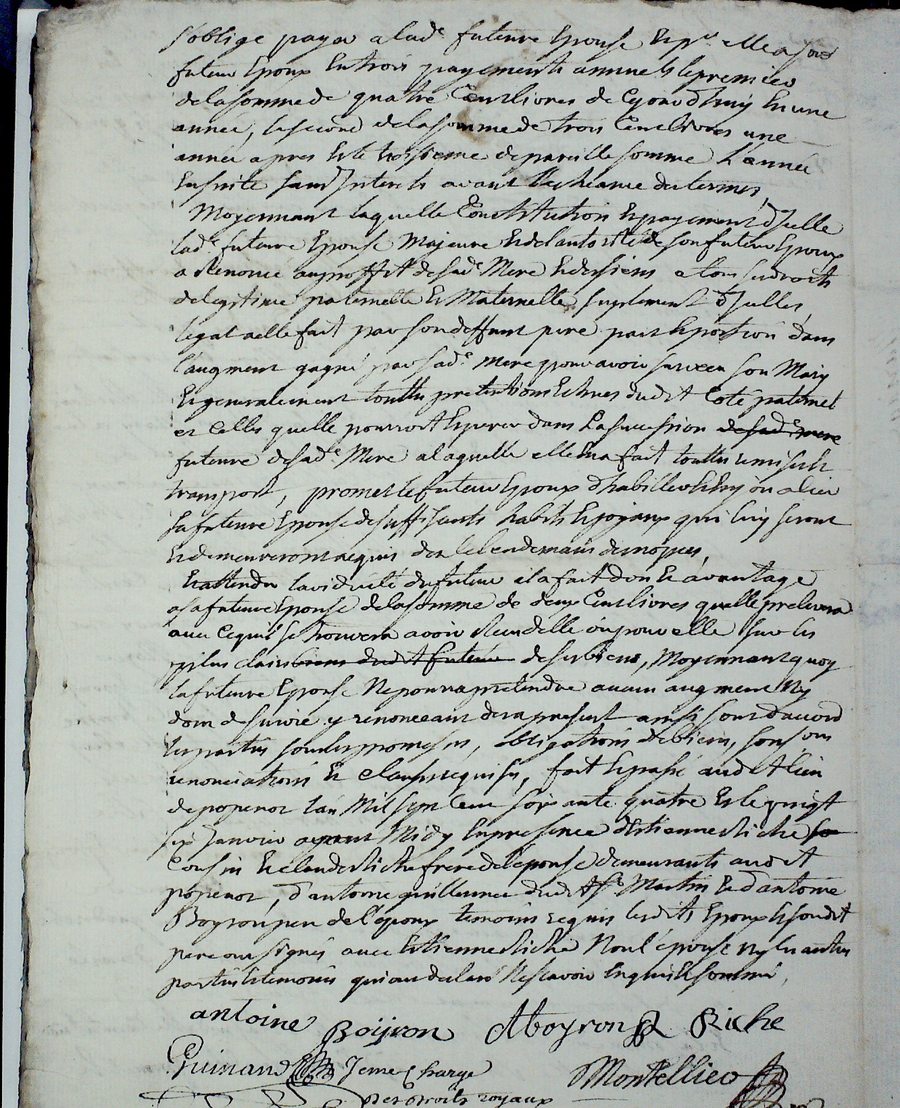 s'oblige payer a lade future Epouse Expr elle a sond
futeur Epoux En trois payements annuels le premier
de la somme de quatre Cent livres de Cejourdhuy En une
année, le second de la somme de trois Cent livres une
année apres Et le troisieme de pareille somme L'année
Ensuite sans Interets avant l'echeance du termes,
Moyennant laquelle Constitution Et payement d'Icelle
lade future Epouse Majeure Et de l'autorité de son futeur Epoux
a Renoncé au proffit de sade Mere Et des siens a tous ses droits
de legitime paternelle Et Maternelle, suplement d'Icelles,
legat a elle fait par son deffunt pere part Et portion dans
l'augment gagné par sade Mere pour avoir survecu son Mary
Et generalement touttes pretentions Echues dudit Coté paternel
et Celles quelle pourroit Esperer dans La succession de sade mere
future de sade Mere a laquelle elle En a fait touttes remises Et
transport, promet le futeur Epoux d'habiller Et Enjoialier
la future Epouse de suffisants habits Et joyaux qui luy seront
Et demeureront acquis des le lendemain des noces,
Et attendu la viduité du futeur il a fait don Et avantage
a la future Epouse de la somme de deux Cent livres quelle prelevera
avec Cequi se trouvera avoir Receu delle ou pour elle sur les
plus clairs biens dudit futeur de ses biens, Moyennant quoy
la future Epouse Ne pourra pretendre aucun augment Ny
don de survie y renonceant des a present ainsi sont d'accord
les parties sous les promesses, obligations de biens, soumissions
renonciations Et clauses requises, fait Et passé audit lieu
de popenot l'an Mil sept Cent soixante quatre Et le vingt
six Janvier avant Midy En presence d'Estienne Riche
Cousin Et Claude Riche frere de l'epouse demeurants audit
popenot, d'antoine guillaume dudit St Martin Et d'antoine
Boyron pere de l'epoux temoins requis lesdits Epoux Et sondit
pere ont signés avec Estienne Riche Non l'epouse Ny les autres
parties Et temoins qui ont declaré Ne scavoir Enquis Et sommés,
antoine Boijron ABoyron Riche
Guinand Jeme Charge Montellier
des droits royaux